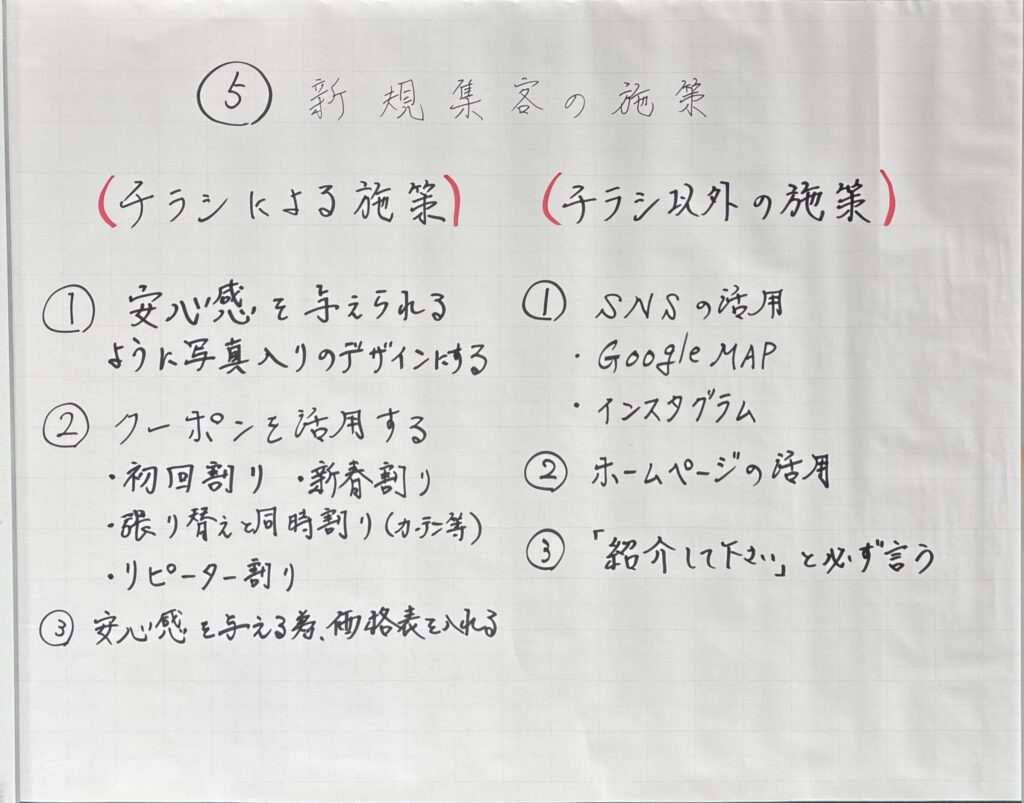 ⑤ 新規集客の施策
(チラシによる施策)
① 安心感を与えられる
ように写真入りのデザインにする
② クーポンを活用する
・初回割り ・新春割り
・張り替えと同時割り(カーテン等)
・リピーター割り
③ 安心感を与える為、価格表を入れる
(チラシ以外の施策)
① SNSの活用
・Google MAP
・インスタグラム
② ホームページの活用
③ 「紹介して下さい」と必ず言う